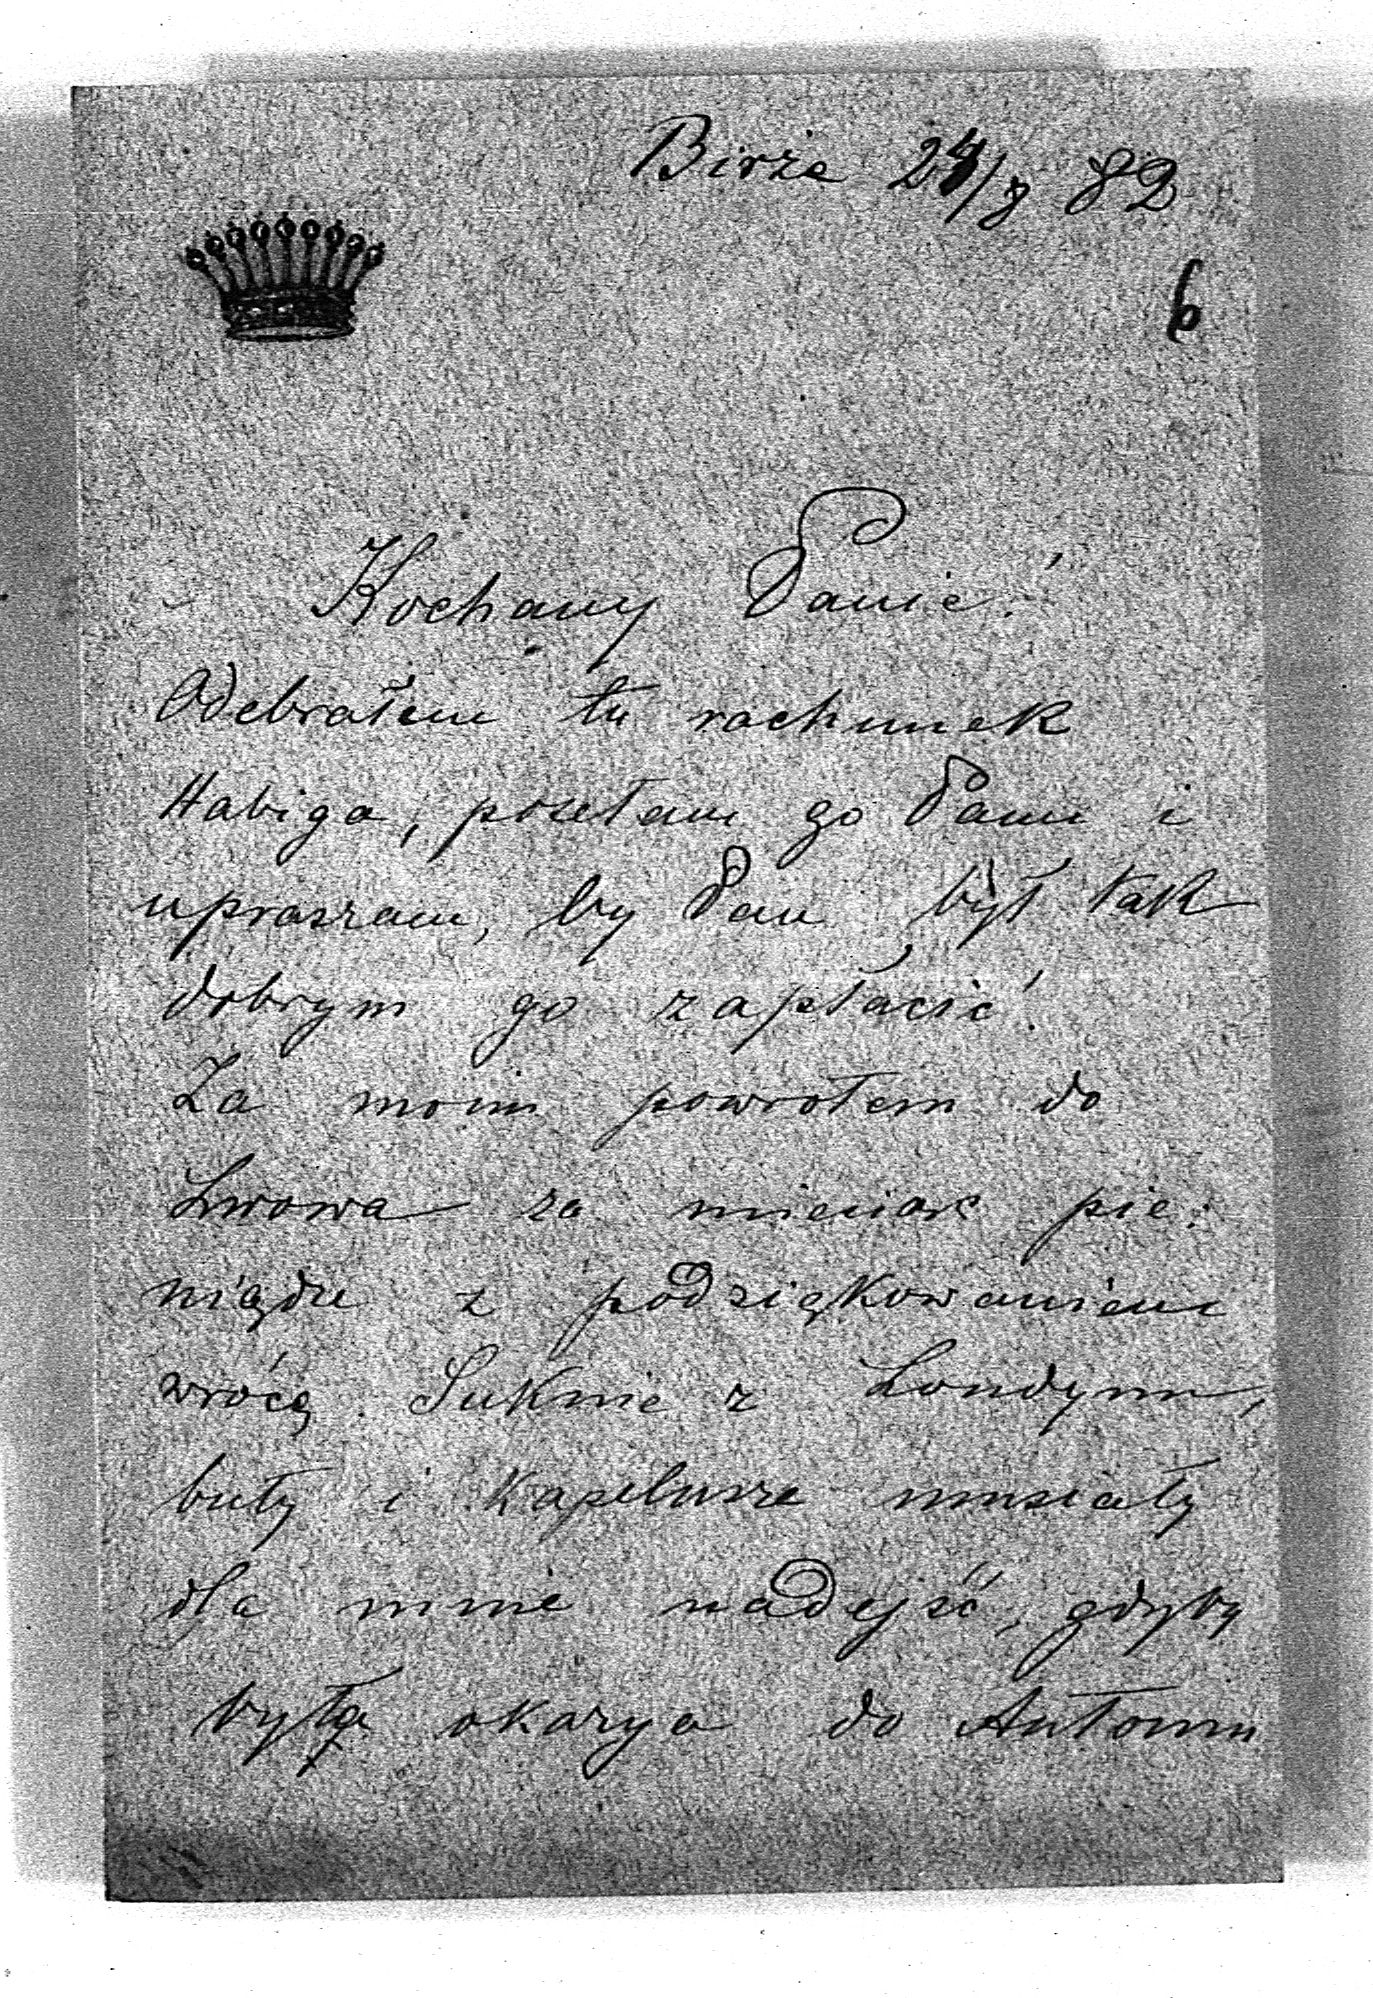 Birże 24/8 82
6
Kochany Panie!
Odebrałem tu rachunek
Habiga, posełam go Panu i
upraszam, by Pan był tak
dobrym go zapłacić!
Za moim powrotem do
Lwowa za miesiąc pie:
niądze z podziękowaniem
wrócę. Suknie z Londynu,
buty i kapelusze musiały
dla mnie nadejść, gdyby
była okazya do Antoniu